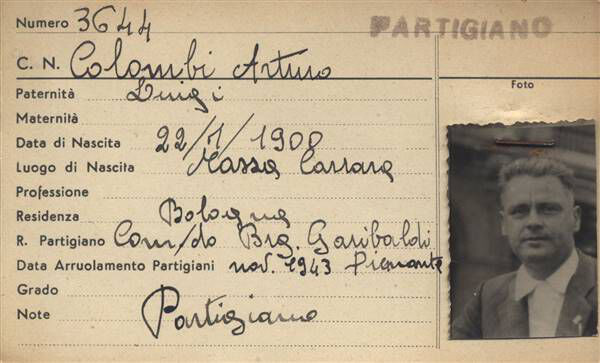 Numero 3644
PARTIGIANO
C. N. Colombi Arturo
Foto
Paternità Luigi
Maternità
Data di Nascita 22/1/1900
Luogo di Nascita Massa Carrara
Professione
Residenza Bologna
R. Partigiano Com/do Brg. Garibaldi
Data Arruolamento Partigiani nov. 1943 Piemonte
Grado
Note Partigiano